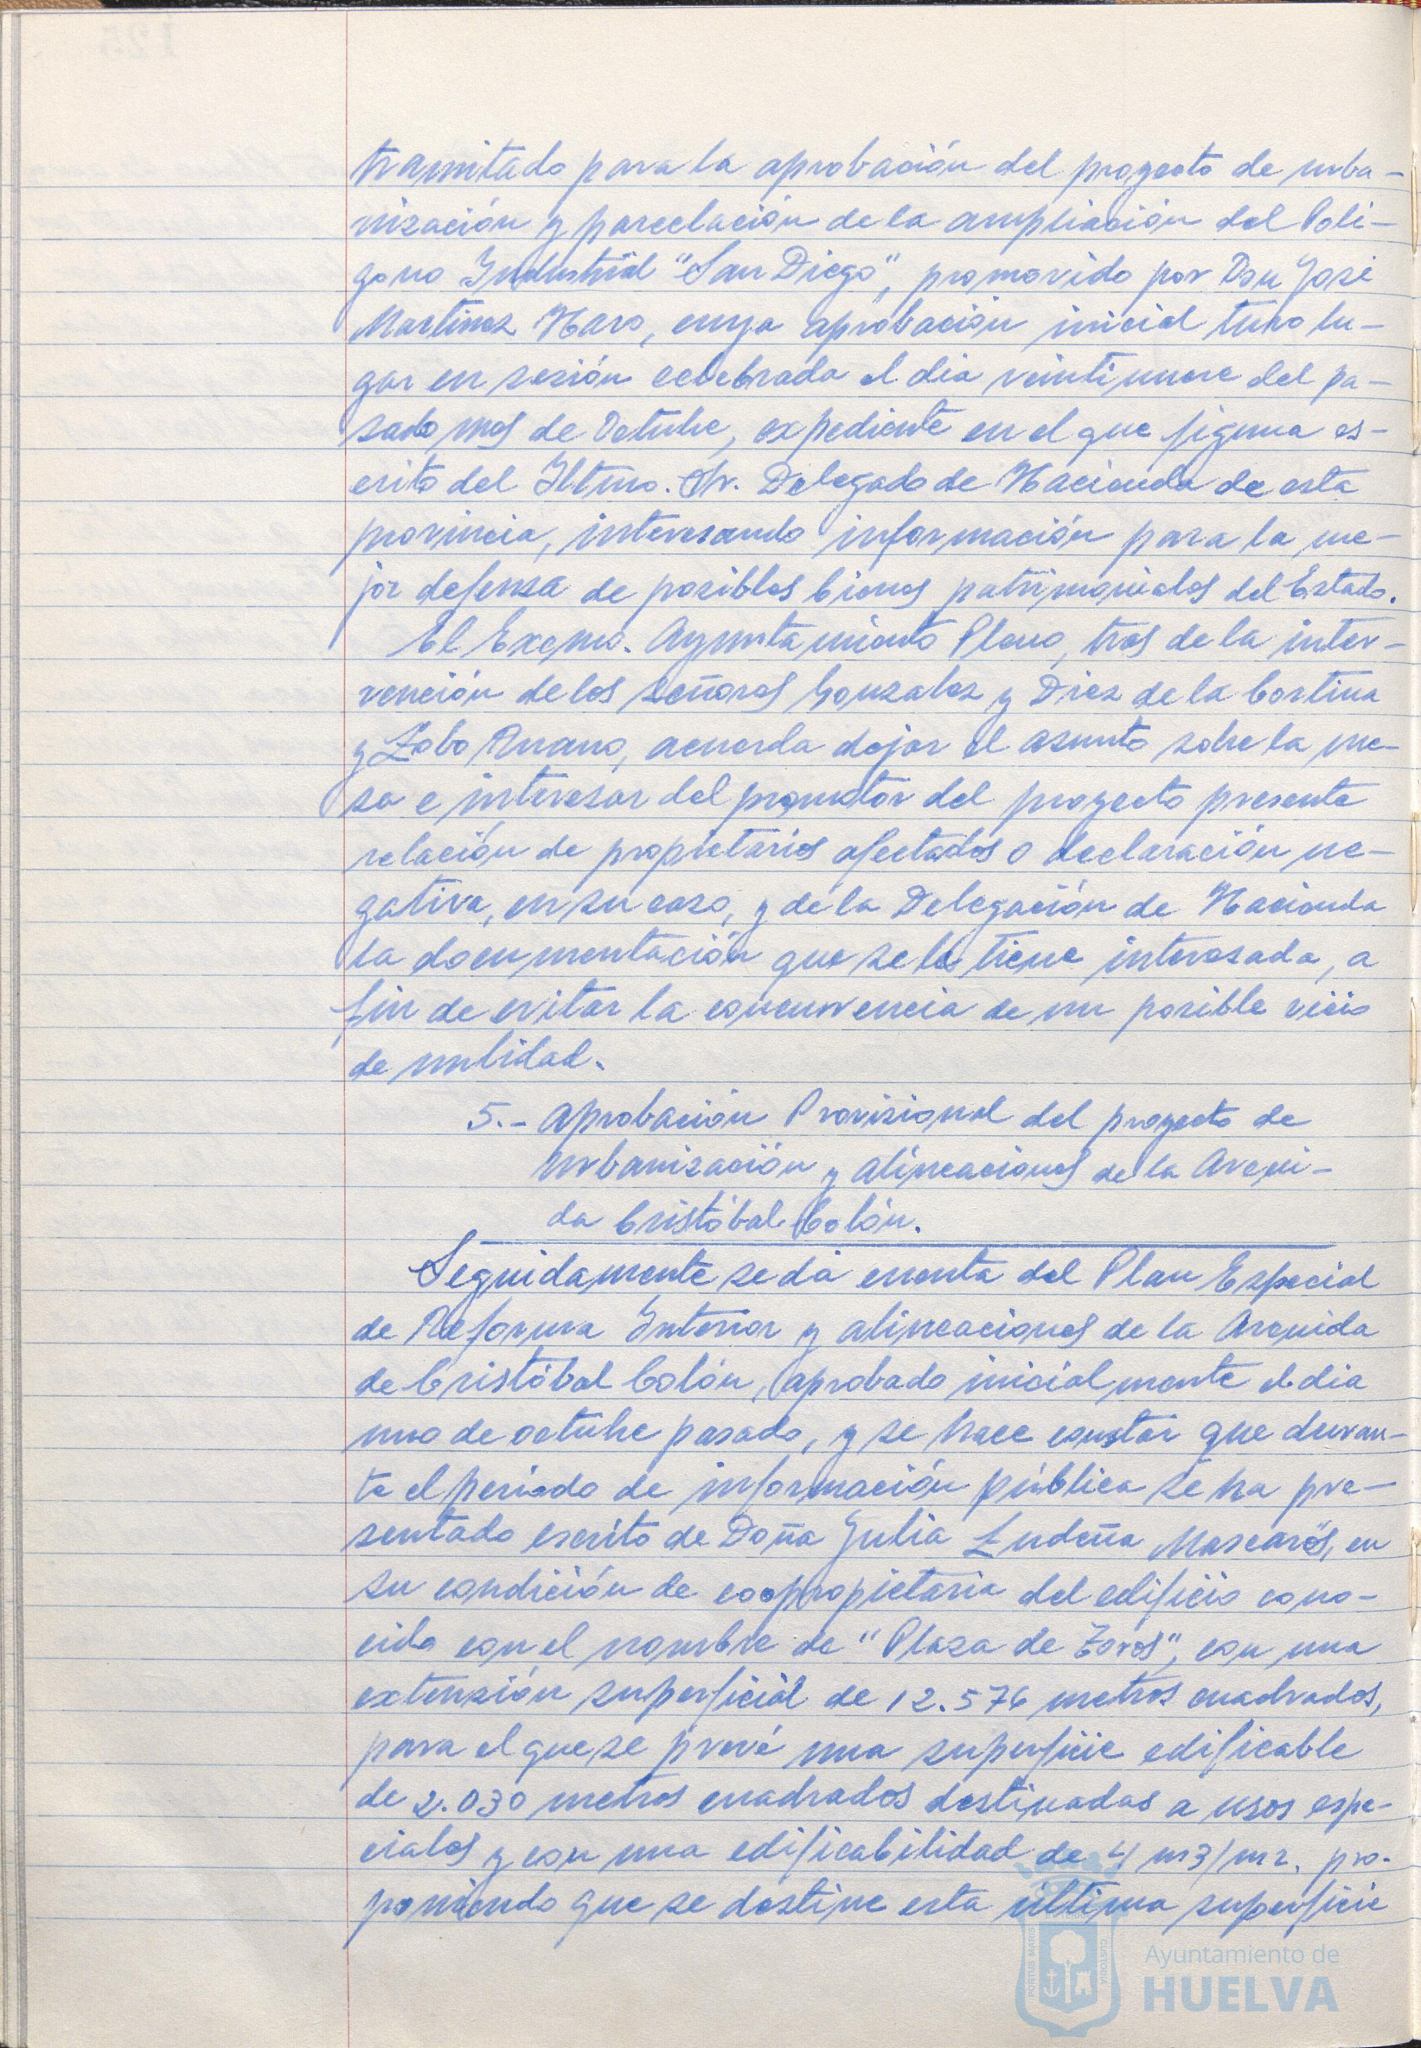 tramitado para la aprobación del proyecto de urba-
nización y parcelación de la ampliación del Polí-
gono Industrial "San Diego", promovido por Don José
Martinez Haro, cuya aprobación inicial tuvo lu-
gar en sesión celebrada el dia veintinueve del pa-
sado mes de Octubre, expediente en el que figura es-
crito del Iltmo. Sr. Delegado de Hacienda de esta
provincia, interesando información para la me-
jor defensa de posibles bienes patrimoniales del Estado.
El Excmo. Ayuntamiento Pleno, tras de la inter-
vención de los señores González y Diez de la Cortina
y Zobo, acuerda dejar el asunto sobre la me-
sa e interesar del promotor del proyecto presente
relación de propietarios afectados o declaración ne-
gativa, en su caso, y de la Delegación de Hacienda
la documentación que se le tiene interesada, a
fin de evitar la concurrencia de un posible vicio
de nulidad.
5.- Aprobación Provisional del proyecto de
urbanización y alineaciones de la Aveni-
da Cristóbal Colón.
Seguidamente se dá cuenta del Plan Especial
de Reforma Interior y alineaciones de la Avenida
de Cristóbal Colón, aprobado inicialmente el dia
uno de octubre pasado, y se hace constar que duran-
te el periodo de información pública se ha pre-
sentado escrito de Doña Julia Ludeña Mascarós, en
su condición de coopropietaria del edificio cono-
cido con el nombre de "Plaza de Toros", con una
extensión superficial de 12.576 metros cuadrados,
para el que se prevé una superficie edificable
de 2.030 metros cuadrados destinadas a usos espe-
ciales y con una edificabilidad de 4 m3/m2. pro-
poniendo que se destine esta última superficie
PORTUS MARIS
CUSTODIA
Ayuntamiento de
HUELVA